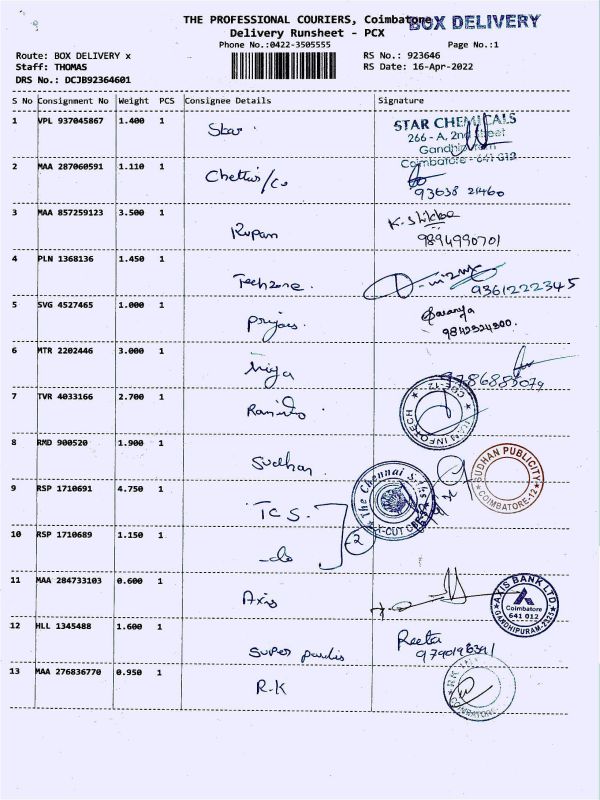 THE PROFESSIONAL COURIERS, Coimbatore
BOX DELIVERY
Delivery Runsheet - PCX
Phone No.:0422-3505555
Page No.:1
Route: BOX DELIVERY x
RS No.: 923646
Staff: THOMAS
RS Date: 16-Apr-2022
DRS No.: DCJB92364601
S No Consignment No Weight PCS Consignee Details Signature
1 VPL 937045867 1.400 1 Star
STAR CHEMICALS
266 - A, 2nd Street
Gandhipuram
Coimbatore - 641 012
2 MAA 287060591 1.110 1 Chettus/Co
93638 21460
3 MAA 857259123 3.500 1 Rupan
9894990701
4 PLN 1368136 1.450 1 Techzone.
9361222345
5 SVG 4527465 1.000 1
Saranya
9842324300.
6 MTR 2202446 3.000 1
9786885079
7 TVR 4033166 2.700 1
INFOTECH
CBE-12
8 RMD 900520 1.900 1 Sudhan
SUDHAN PUBLICITY
COIMBATORE-12
9 RSP 1710691 4.750 1 TCS.
The Chennai Silks
X-CUT
2
10 RSP 1710689 1.150 1 -do
11 MAA 284733103 0.600 1 Axis
AXIS BANK LTD
Coimbatore
641 012
GANDHIPURAM
12 HLL 1345488 1.600 1 Super
Reeta
9790196341
13 MAA 276836770 0.950 1 R.K
RK
COIMBATORE